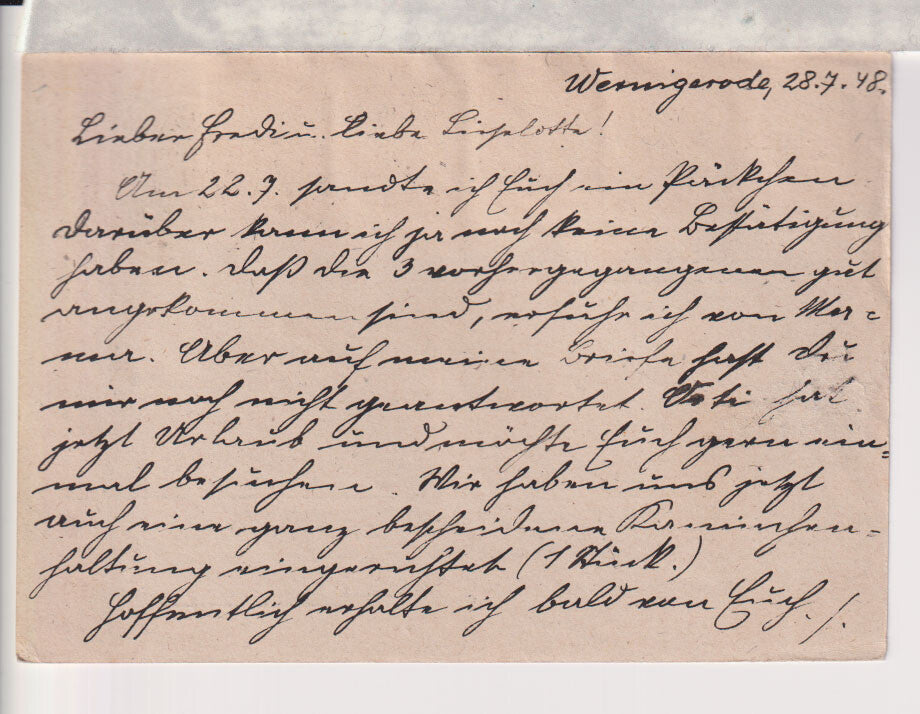 Wernigerode, 28.7.48.
Lieber Fredi u. liebe Lieselotte!
Am 22.7. sandte ich Euch ein Päckchen
darüber kann ich ja noch keine Bestätigung
haben. Daß die 3 vorhergegangenen gut
angekommen sind, erfuhr ich von Ma=
ma. Aber auf meine Briefe hast Du
mir noch nicht geantwortet. hat
jetzt Urlaub und möchte Euch gern ein=
mal besuchen. Wir haben uns jetzt
auch eine ganz bescheidene Kaninchen=
haltung eingerichtet (1 Stück.)
Hoffentlich erhalte ich bald von Euch ./.